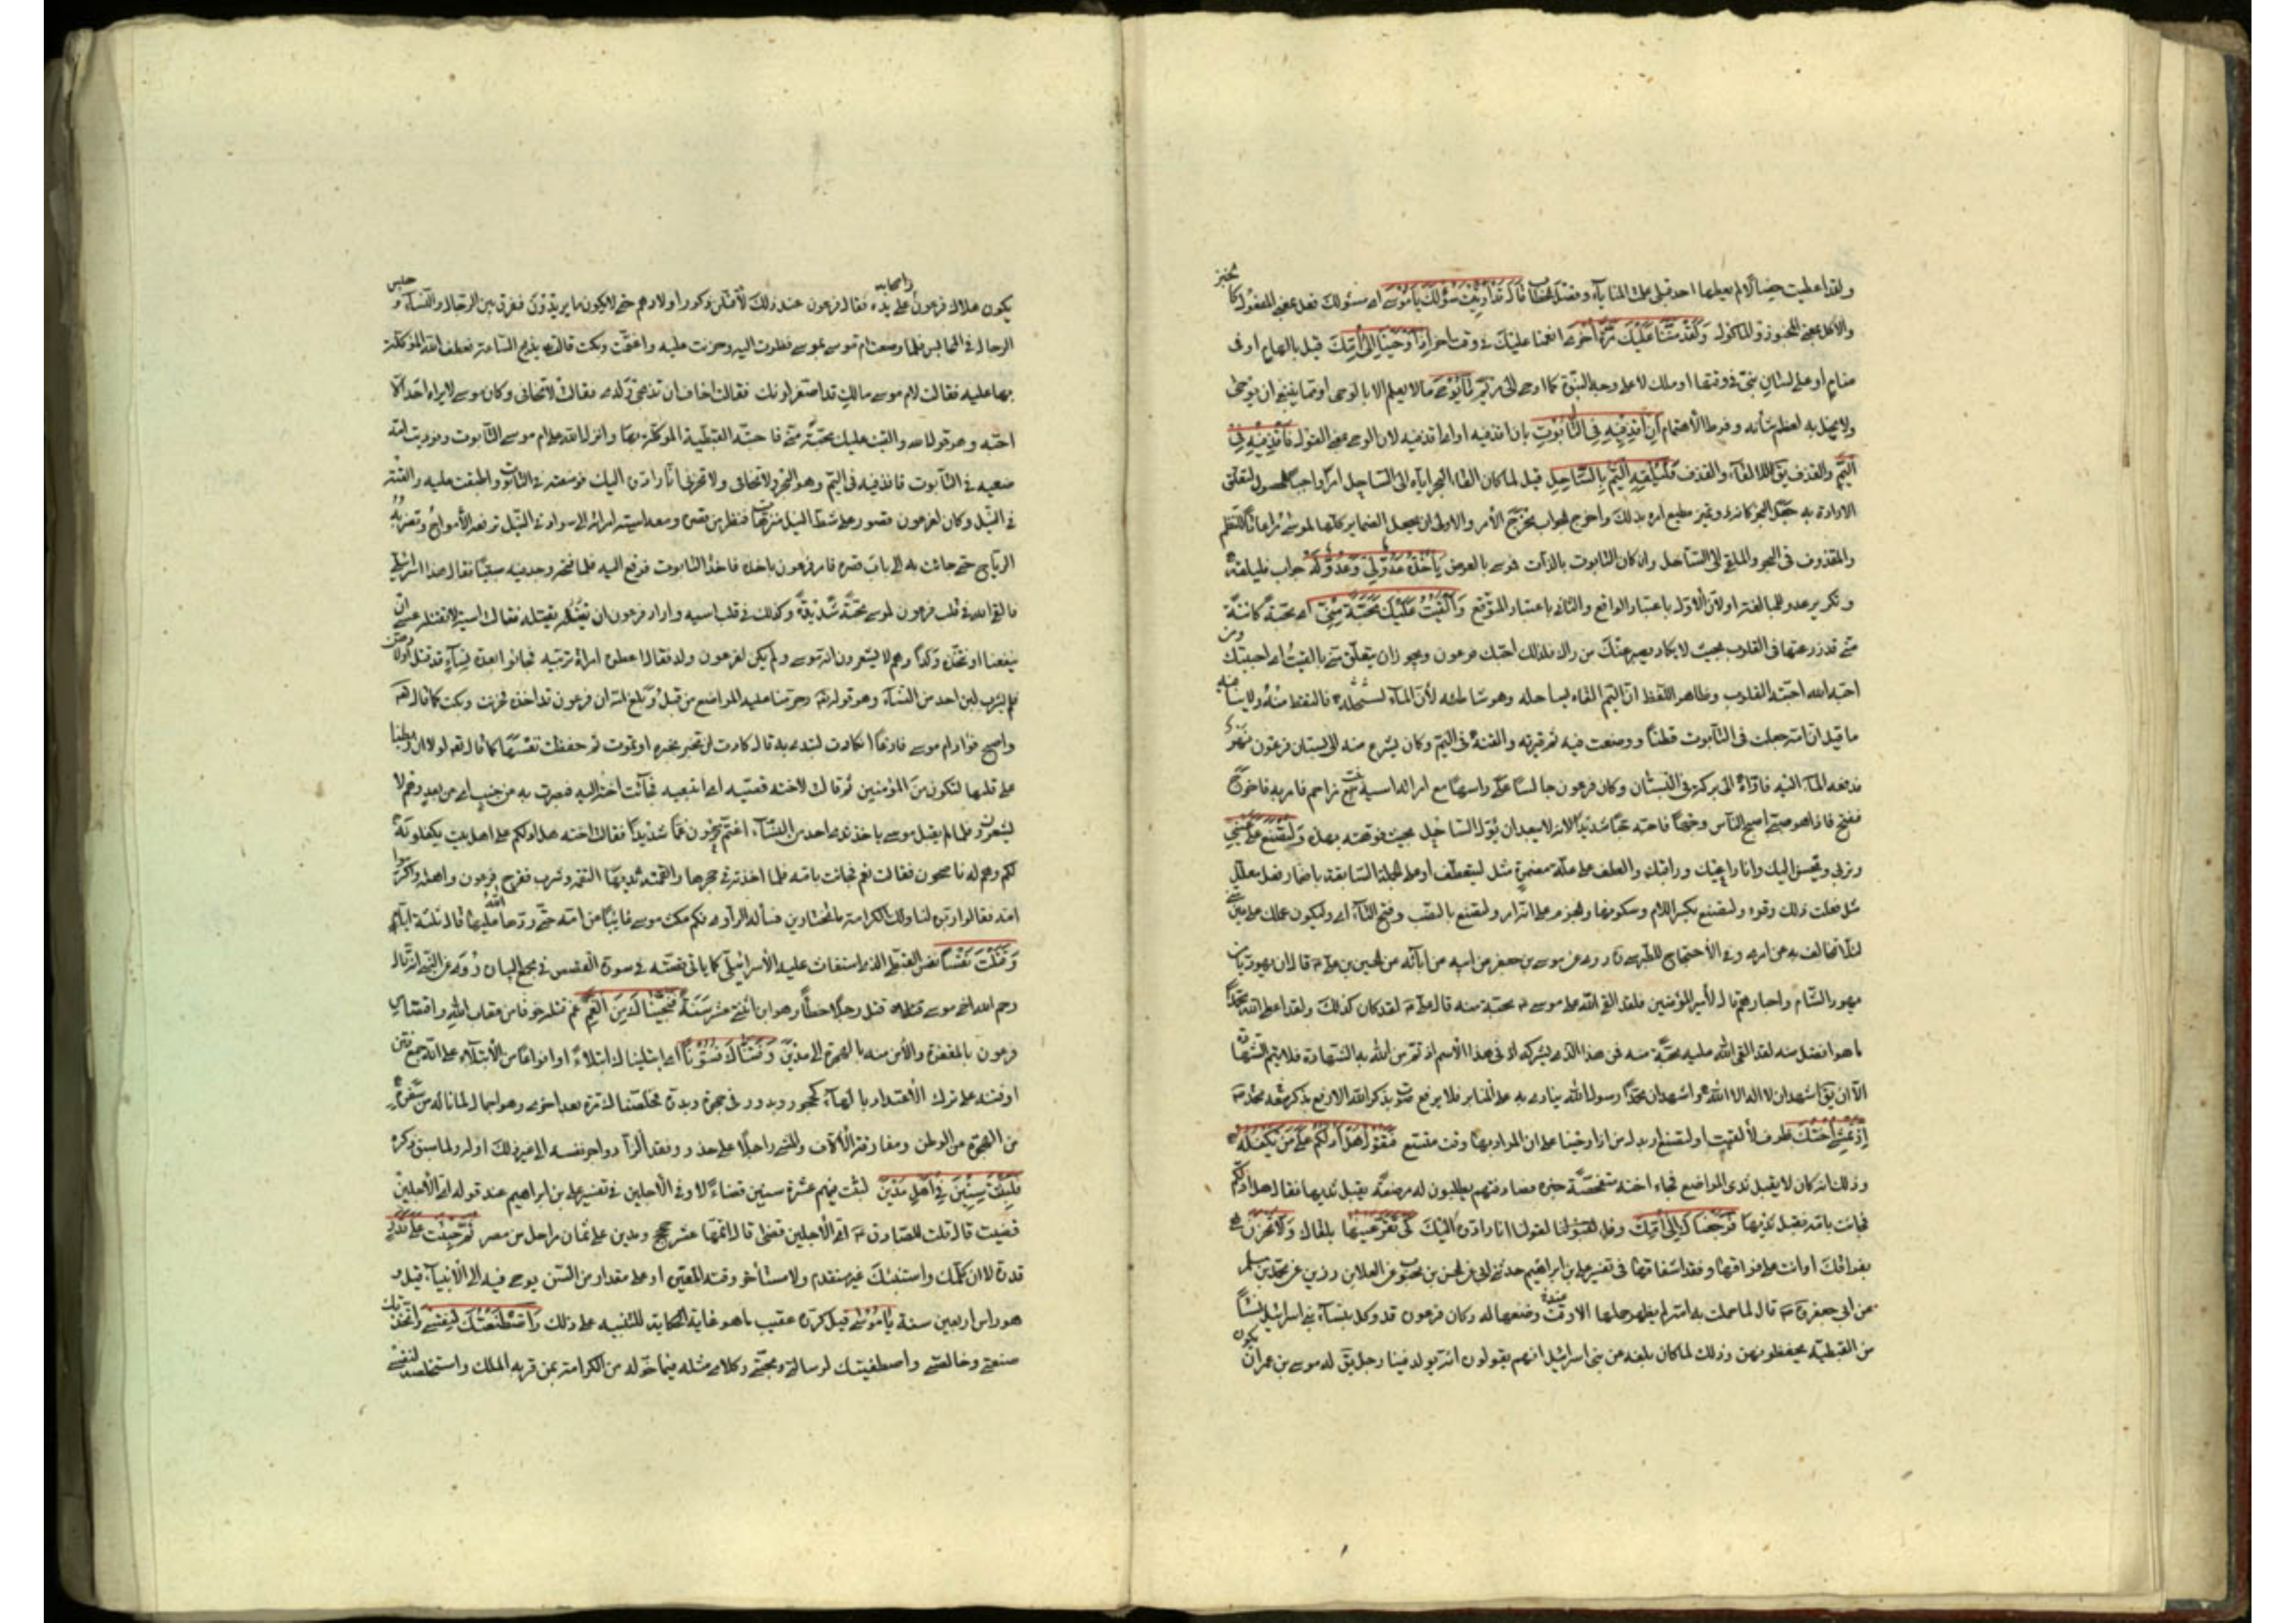 ولقد اعطيت خصالا لم يعطها احد قبلى علمت المنايا وفصل الخطاب قَالَ قَدْ أُوتِيتَ سُؤْلَكَ يَا مُوسَى اى مسئولك فعل بمعنى المفعول كالخبز
والاكل بمعنى المخبوز والماكول وَلَقَدْ مَنَنَّا عَلَيْكَ مَرَّةً أُخْرَى انعمنا عليك فى وقت اخر إِذْ أَوْحَيْنَا إِلَى أُمِّكَ قيل بالهام او فى
منام او على لسان نبى فى وقتها او ملك لا على وجه النبوة كما اوحى الى مريم مَا يُوحَى ما لا يعلم الا بالوحى او مما ينبغى ان يوحى
ولا يخل به لعظم شأنه وفرط الاهتمام أَنِ اقْذِفِيهِ فِي التَّابُوتِ بان اقذفيه او اى اقذفيه لان الوحى بمعنى القول فَاقْذِفِيهِ فِي
الْيَمِّ والقذف يق للالقاء والقذف فَلْيُلْقِهِ الْيَمُّ بِالسَّاحِلِ قيل لما كان القاء البحر اياه الى الساحل امرا واجب الحصول لتعلق
الارادة به جعل البحر كانه ذو تميز مطيع امره بذلك واخرج الجواب مخرج الامر والاولى ان يجعل الضماير كلها لموسى مراعاة للنظم
والمقذوف فى البحر والملقى الى الساحل وان كان التابوت بالذات فموسى بالعرض يَأْخُذْهُ عَدُوٌّ لِي وَعَدُوٌّ لَهُ جواب فليلقه
وتكرير عدو للمبالغة او لان الاول باعتبار الواقع والثانى باعتبار المتوقع وَأَلْقَيْتُ عَلَيْكَ مَحَبَّةً مِنِّي اى محبة كائنة
منى قد زرعتها فى القلوب بحيث لا يكاد يصبر عنك من راك فلذلك احبك فرعون ويجوز ان يتعلق منى بالقيت اى احببتك ومن
احبه الله احبته القلوب وظاهر اللفظ ان اليم القاه بساحله وهو شاطئه لان الماء يسحله فالتقط منه
ما قيل ان امه جعلت فى التابوت قطنا ووضعت فيه ثم قيرته والقته فى اليم وكان يشرع منه الى بستان فرعون نهر
فدفعه الماء اليه فاداه الى بركة فى البستان وكان فرعون جالسا على راسها مع امراته اسية بنت مزاحم فامر به فاخرج
ففتح فاذا هو صبى اصبح الناس وجها فاحبه حبا شديدا لانه لا يبعد ان يؤل الساحل بحيث فوهته بهذه وَلِتُصْنَعَ عَلَى عَيْنِي
وتربى ويحسن اليك وانا راعيك وراقبك والعطف على علة مضمرة مثل ليتعطف او على الجملة السابقة باضمار فعل معلل
مثل فعلت ذلك وقرء ولتصنع بكسر اللام وسكونها والجزم على انه امر ولتصنع بالنصب وفتح التاء اى وليكون عملك على عين
لئلا تخالف به عن امرى وفى الاحتجاج للطبرسى روى عن موسى بن جعفر عن ابيه عن آبائه عن الحسين بن على قال ان يهوديا من
يهود الشام واحبارهم قال لامير المؤمنين فلقد القى الله على موسى محبة منه قال على لقد كان كذلك ولقد اعطى الله محمدا
ما هو افضل منه لقد القى الله عليه محبة منه فمن هذا الذى يشركه فى هذا الاسم اذ تم من الله به الشهادة فلا يتم الشهادة
الا ان يق اشهد ان لا اله الا الله واشهد ان محمدا رسول الله ينادى به على المنابر فلا يرفع صوت بذكر الله الا رفع بذكر محمد معه
إِذْ تَمْشِي أُخْتُكَ ظرف لالقيت او لتصنع او بدل من اذ اوحينا على ان المراد بها وقت متسع فَتَقُولُ هَلْ أَدُلُّكُمْ عَلَى مَنْ يَكْفُلُهُ
وذلك انه كان لا يقبل ثدى المراضع فجاء اخته متفحصة خبره فصادفتهم يطلبون له مرضعة يقبل ثديها فقال هل ادلكم
فجاءت بامه فقبل ثديها فَرَجَعْنَاكَ إِلَى أُمِّكَ وفاء لقولنا انا رادوه اليك كَيْ تَقَرَّ عَيْنُهَا بلقاك وَلَا تَحْزَنَ هى
بفراقك او انت على فراقها وفقد اشفاقها فى تفسير على بن ابراهيم حدثنى ابى عن الحسن بن محبوب عن العلا بن رزين عن محمد بن مسلم
عن ابى جعفر قال لما حملت به امه لم يظهر حملها الا وقت وضعها له وكان فرعون قد وكل بنساء بنى اسرائيل نساء
من القبطية يحفظونهن وذلك لما كان بلغه من بنى اسرائيل انهم يقولون انه يولد فينا رجل يق له موسى بن عمران يكون
يكون هلاك فرعون واصحابه على يده فقال فرعون عند ذلك لاقتلن ذكور اولادهم حتى لا يكون ما يريدون ففرق بين الرجال والنساء وحبس
الرجال فى المحابس فلما وضعت ام موسى بموسى نظرت اليه وحزنت عليه واغتمت وبكت قالت يذبح الساعة فعطف الله الموكلة
بها عليه فقالت لام موسى مالك قد اصفر لونك فقالت اخاف ان تذبحى ولدى فقالت لا تخافى وكان موسى لا يراه احد الا
احبه وهو قول الله والقيت عليك محبة منى فاحبته القبطية الموكلة بها وانزل الله على ام موسى التابوت ونوديت امه
ضعيه فى التابوت فاقذفيه فى اليم وهو البحر لا تخافى ولا تحزنى انا رادوه اليك فوضعته فى التابوت واطبقت عليه والقته
فى النيل وكان لفرعون قصور على شط النيل منزهات فنظر من قصره ومعه اسية امراته الى سواد فى النيل ترفعه الامواج وتضربه
الرياح حتى جاءت به الى باب قصره فامر فرعون باخذه فاخذ التابوت فرفع اليه فلما فتحه وجد فيه صبيا فقال هذا اسرائيلى
فالقى الله فى قلب فرعون لموسى محبة شديدة وكذلك فى قلب اسيه واراد فرعون ان يقتله فقالت اسية لا تقتله عسى ان
ينفعنا او نتخذه ولدا وهم لا يشعرون انه موسى ولم يكن لفرعون ولد فقال اطلبوا امراة تربيه فجاؤا بعدة نساء قد قتل اولادهن
فلم يشرب لبن احد من النساء وهو قوله تعالى وحرمنا عليه المراضع من قبل وبلغ امه ان فرعون قد اخذه فحزنت وبكت كما قال الله
واصبح فؤاد ام موسى فارغا ان كادت لتبدى به قال كادت ان تخبر بخبره او تموت ثم حفظت نفسها كما قال تعالى لولا ان ربطنا
على قلبها لتكون من المؤمنين ثم قالت لاخته قصيه اى اتبعيه فجائت اخته اليه فبصرت به عن جنب اى من بعد وهم لا
يشعرون فلما لم يقبل موسى باخذ ثدى احد من النساء اغتم فرعون غما شديدا فقالت اخته هل ادلكم على اهل بيت يكفلونه
لكم وهم له ناصحون فقالت نعم فجائت بامه فلما اخذته فى حجرها والقمته ثديها التقمه وشرب ففرح فرعون واهله واكرموا
امه فقالوا ربيه لنا ولك الكرامة فسأله الراوى فكم مكث موسى غائبا من امه حتى ردها الله عليها قال ثلثة ايام
وَقَتَلْتَ نَفْسًا نفس القبطى الذى استغاث عليه الاسرائيلى كما ياتى قصته فى سورة القصص فى مجمع البيان روى عن النبى انه قال
رحم الله اخى موسى قتل رجلا خطأ وهو ابن اثنتى عشر سنة فَنَجَّيْنَاكَ مِنَ الْغَمِّ غم قتله خوفا من عقاب الله واقتصاص
فرعون بالمغفرة والامن منه بالهجرة الى مدين وَفَتَنَّاكَ فُتُونًا اى ابتليناك ابتلاء او انواعا من الابتلاء على انه جمع فتن
او فتنة على ترك الاعتداد بالهاء كحجور وبدور فى حجرة وبدرة فخلصناك مرة بعد اخرى وهو اجمال لما ناله من سفره
من الهجرة من الوطن ومفارقة الالاف والمشى راجلا على حذر وفقد الزاد واجر نفسه الى غير ذلك او له ولما سبق ذكره
فَلَبِثْتَ سِنِينَ فِي أَهْلِ مَدْيَنَ لبثت فيهم عشرة سنين قضاء لاوفى الاجلين فى تفسير على بن ابراهيم عند قوله اى الاجلين
قضيت قال قلت للصادق اى الاجلين قضى قال اتمها عشر حجج ومدين على ثمان مراحل من مصر ثُمَّ جِئْتَ عَلَى قَدَرٍ
قدرته لان اكلمك واستنبئك غير مستقدم ولا مستأخر وقته المعين او على مقدار من السن يوحى فيه الى الانبياء قيل و
هو راس اربعين سنة يَا مُوسَى قيل كرره عقيب ما هو غاية الحكاية للتنبيه على ذلك وَاصْطَنَعْتُكَ لِنَفْسِي واتخذتك
صنعتى وخالصتى واصطفيتك لرسالتى ومحبتى وكلامى مثله فيما خوله من الكرامة بمن قربه الملك واستخلصه لنفسه